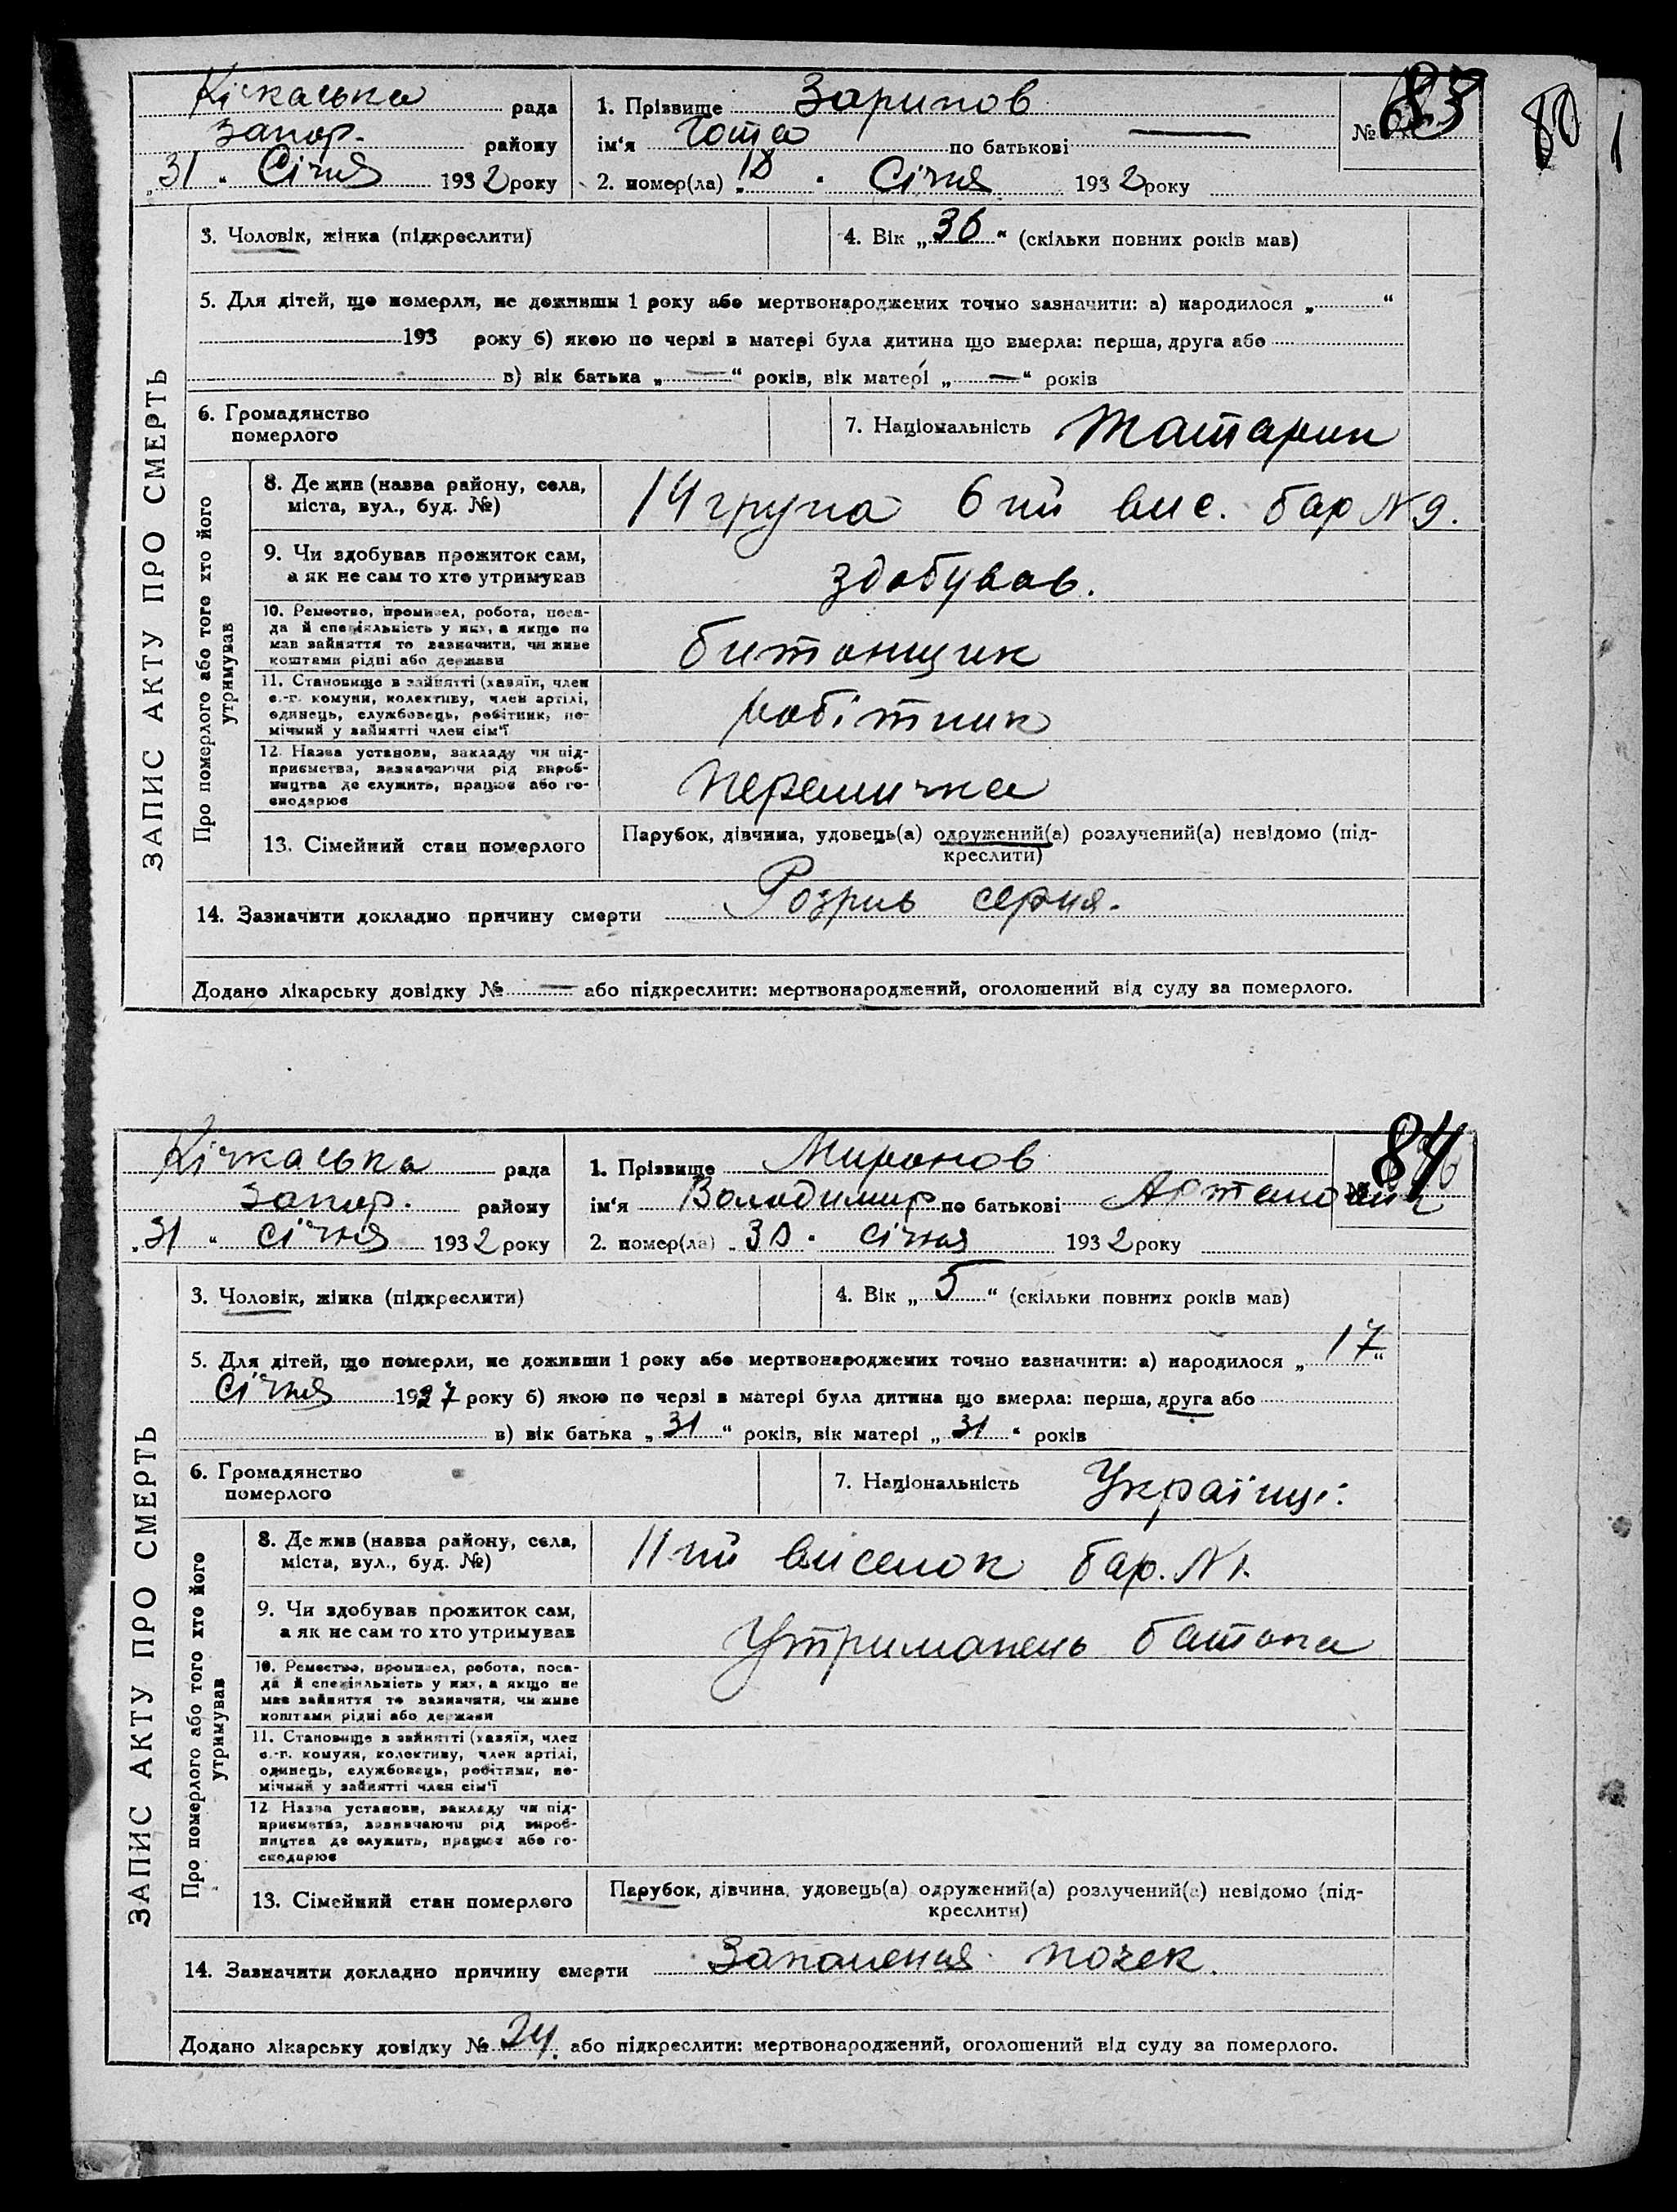 Кічкаська рада
Запор. району
„31“ Січня 1932 року
1. Прізвище Зарипов
ім‘я по батькові —
2. помер(ла) „18“ Січня 1932 року
№ 83
80
1
ЗАПИС АКТУ ПРО СМЕРТЬ
3. Чоловік, жінка (підкреслити)
4. Вік „36“ (скільки повних років мав)
5. Для дітей, що померли, не доживши 1 року або мертвонароджених точно зазначити: а) народилося „ “
193 року б) якою по черзі в матері була дитина що вмерла: перша, друга або
в) вік батька „—“ років, вік матері „—“ років
6. Громадянство
померлого
7. Національність Татарин
Про померлого або того хто його
утримував
8. Де жив (назва району, села,
міста, вул., буд. №)
14 група 6 ий вис. бар N 9.
9. Чи здобував прожиток сам,
а як не сам то хто утримував
здобував.
10. Ремество, промисел, робота, поса-
да й спеціяльність у них, а якщо не
мав зайняття то зазначити, чи живе
коштами рідні або держави
битонщик
11. Становище в зайнятті (хазяїн, член
с.-г. комуни, колективу, член артілі,
одинець, службовець, робітник, по-
мічний у зайнятті член сім'ї
робітник
12. Назва установи, закладу чи під-
приємства, зазначаючи рід вироб-
ництва де служить, працює або го-
сподарює
перемичка
13. Сімейний стан померлого
Парубок, дівчина, удовець(а) одружений(а) розлучений(а) невідомо (під-
креслити)
14. Зазначити докладно причину смерти Розрив серця.
Додано лікарську довідку № — або підкреслити: мертвонароджений, оголошений від суду за померлого.
Кічкаська рада
Запор. району
„31“ січня 1932 року
1. Прізвище Миронов
ім‘я Володимир по батькові
2. помер(ла) „30“ січня 1932 року
№ 84
ЗАПИС АКТУ ПРО СМЕРТЬ
3. Чоловік, жінка (підкреслити)
4. Вік „5“ (скільки повних років мав)
5. Для дітей, що померли, не доживши 1 року або мертвонароджених точно зазначити: а) народилося „17“
Січня 1927 року б) якою по черзі в матері була дитина що вмерла: перша, друга або
в) вік батька „31“ років, вік матері „31“ років
6. Громадянство
померлого
7. Національність
Про померлого або того хто його
утримував
8. Де жив (назва району, села,
міста, вул., буд. №)
11 ий виселок бар. N 1.
9. Чи здобував прожиток сам,
а як не сам то хто утримував
Утриманець батька
10. Ремество, промисел, робота, поса-
да й спеціяльність у них, а якщо не
мав зайняття то зазначити, чи живе
коштами рідні або держави
11. Становище в зайнятті (хазяїн, член
с.-г. комуни, колективу, член артілі,
одинець, службовець, робітник, по-
мічний у зайнятті член сім'ї
12 Назва установи, закладу чи під-
приємства, зазначаючи рід вироб-
ництва де служить, працює або го-
сподарює
13. Сімейний стан померлого
Парубок, дівчина, удовець(а) одружений(а) розлучений(а) невідомо (під-
креслити)
14. Зазначити докладно причину смерти Запалення почек.
Додано лікарську довідку № 24. або підкреслити: мертвонароджений, оголошений від суду за померлого.